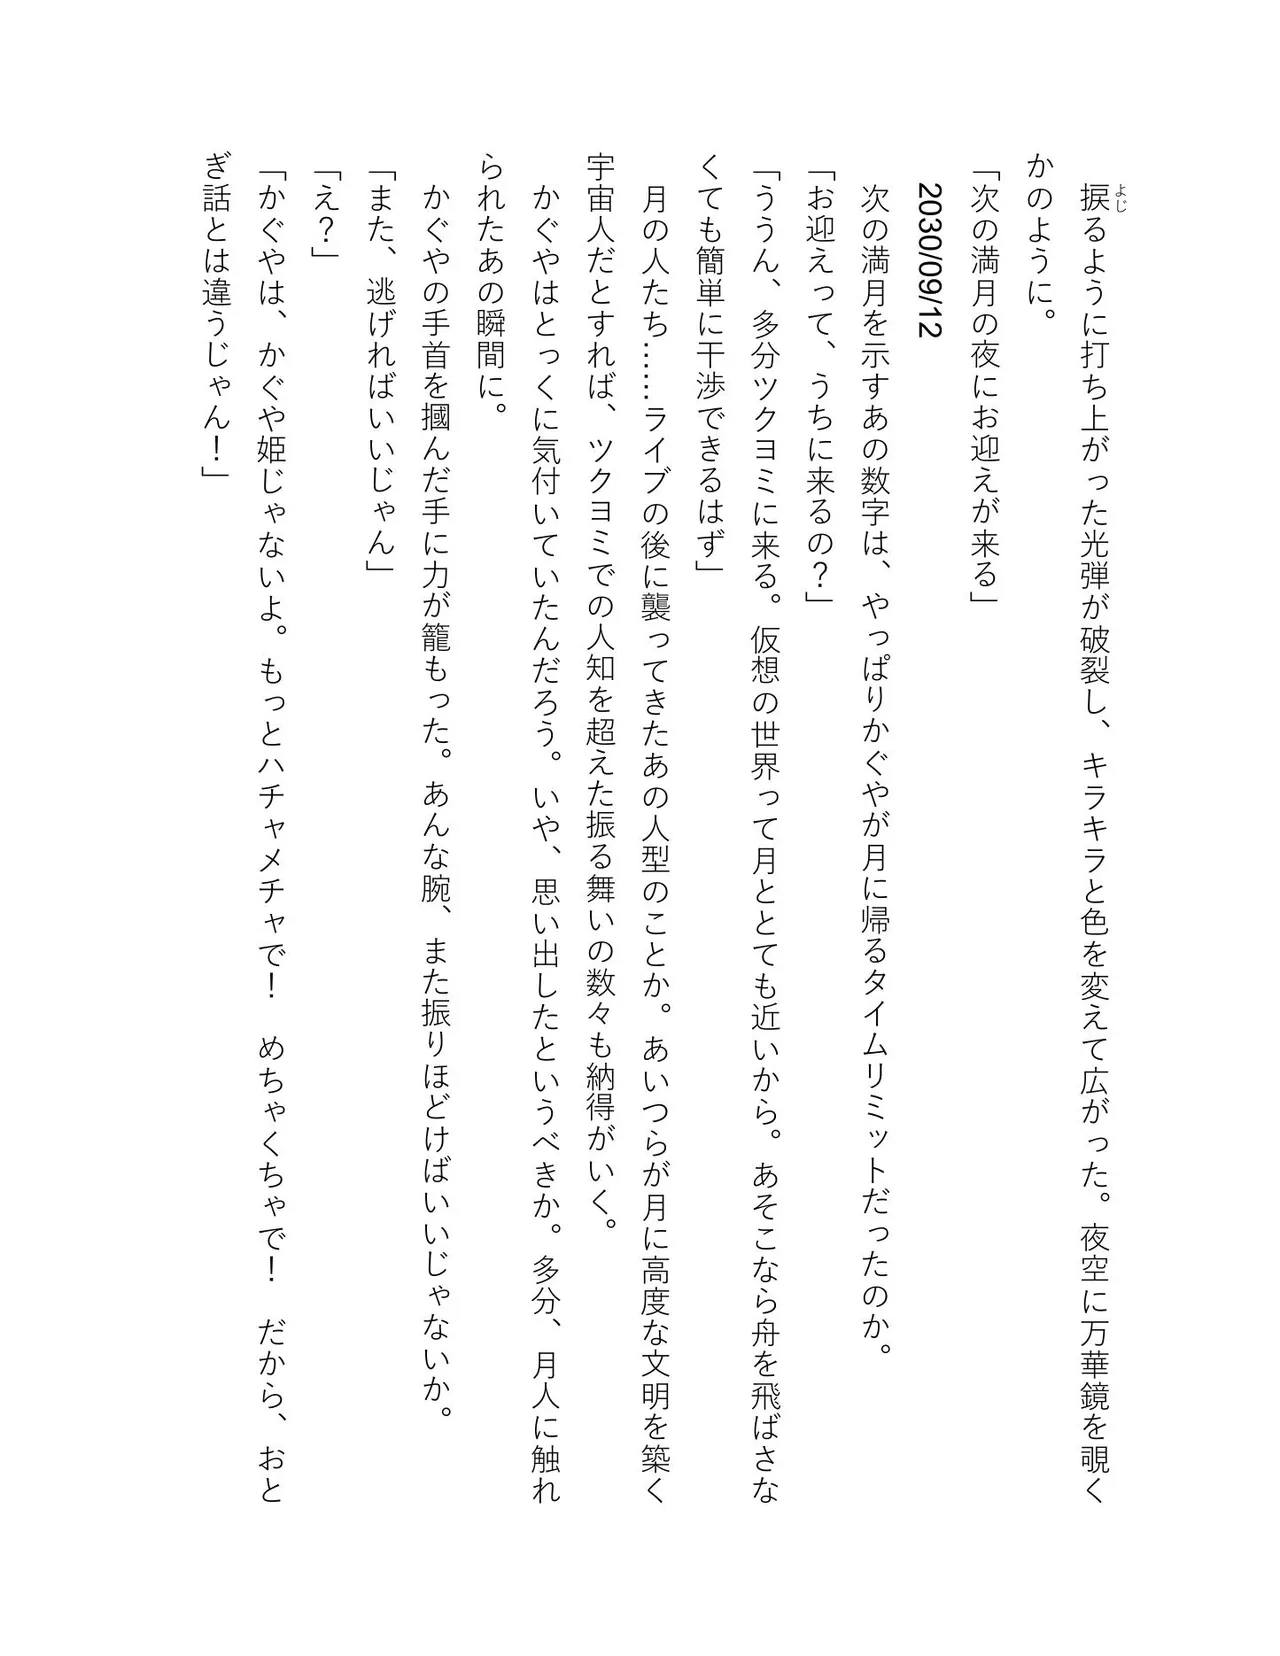 捩るように打ち上がった光弾が破裂し、キラキラと色を変えて広がった。夜空に万華鏡を覗く
よじ
かのように。
「次の満月の夜にお迎えが来る」
2030/09/12
次の満月を示すあの数字は、やっぱりかぐやが月に帰るタイムリミットだったのか。
「お迎えって、うちに来るの？」
「ううん、多分ツクヨミに来る。仮想の世界って月ととても近いから。あそこなら舟を飛ばさな
くても簡単に干渉できるはず」
月の人たち……ライブの後に襲ってきたあの人型のことか。あいつらが月に高度な文明を築く
宇宙人だとすれば、ツクヨミでの人知を超えた振る舞いの数々も納得がいく。
かぐやはとっくに気付いていたんだろう。いや、思い出したというべきか。多分、月人に触れ
られたあの瞬間に。
かぐやの手首を摑んだ手に力が籠もった。あんな腕、また振りほどけばいいじゃないか。
「また、逃げればいいじゃん」
「え？」
「かぐやは、かぐや姫じゃないよ。もっとハチャメチャで！　めちゃくちゃで！　だから、おと
ぎ話とは違うじゃん！」